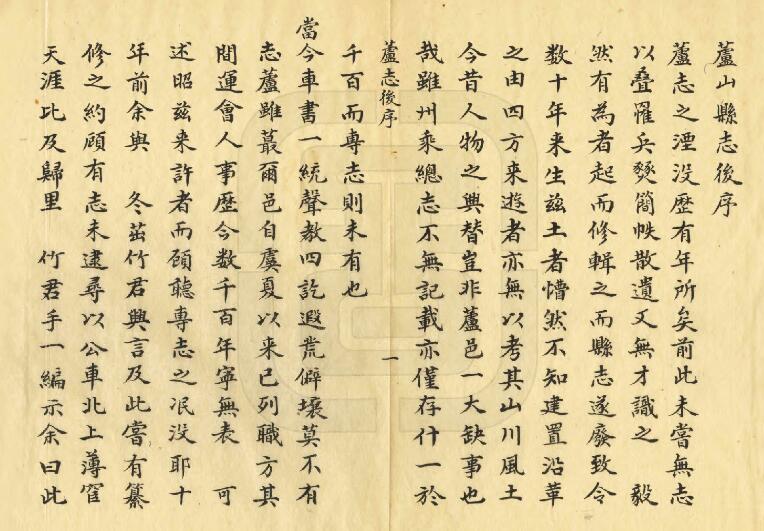 蘆山縣志後序
蘆志之湮没歷有年所矣前此未嘗無志
以疊罹兵燹簡帙散遺又無才識之 毅
然有為者起而修輯之而縣志遂廢致令
数十年来生兹土者懵然不知建置沿革
之由四方来遊者亦無以考其山川風土
今昔人物之興替豈非蘆邑一大缺事也
哉雖州乘總志不無記載亦僅存什一於
蘆志後序
一
千百而專志則未有也
當今車書一統聲教四訖遐荒僻壤莫不有
志蘆雖蕞爾邑自虞夏以来已列職方其
間運會人事歷今数千百年寧無表 可
述昭兹来許者而顧聽專志之泯没耶十
年前余與 冬茁竹君興言及此嘗有纂
修之約顧有志未逮尋以公車北上薄宦
天涯比及歸里 竹君手一編示余曰此